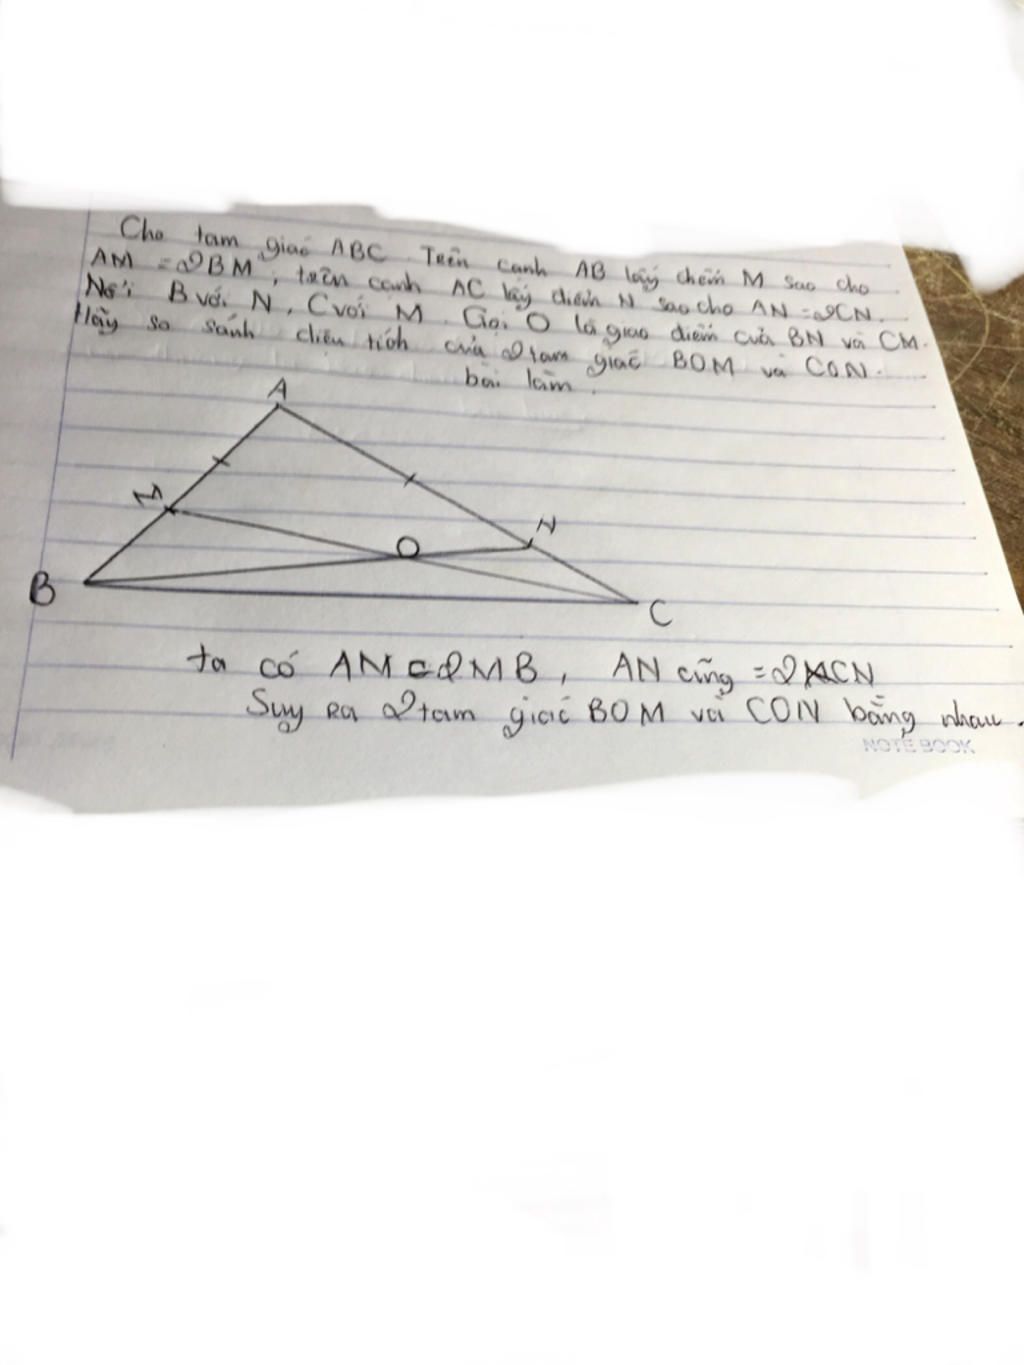 Cho tam giác ABC. Trên cạnh AB lấy điểm M sao cho
AM = 2BM, trên cạnh AC lấy điểm N sao cho AN = 2CN.
Nối B với N, C với M. Gọi O là giao điểm của BN và CM.
Hãy so sánh diện tích của 2 tam giác BOM và CON.
bài làm.
A
M
N
O
B
C
ta có AM = 2MB, AN cũng = 2CN
Suy ra 2 tam giác BOM và CON bằng nhau.
NOTE BOOK